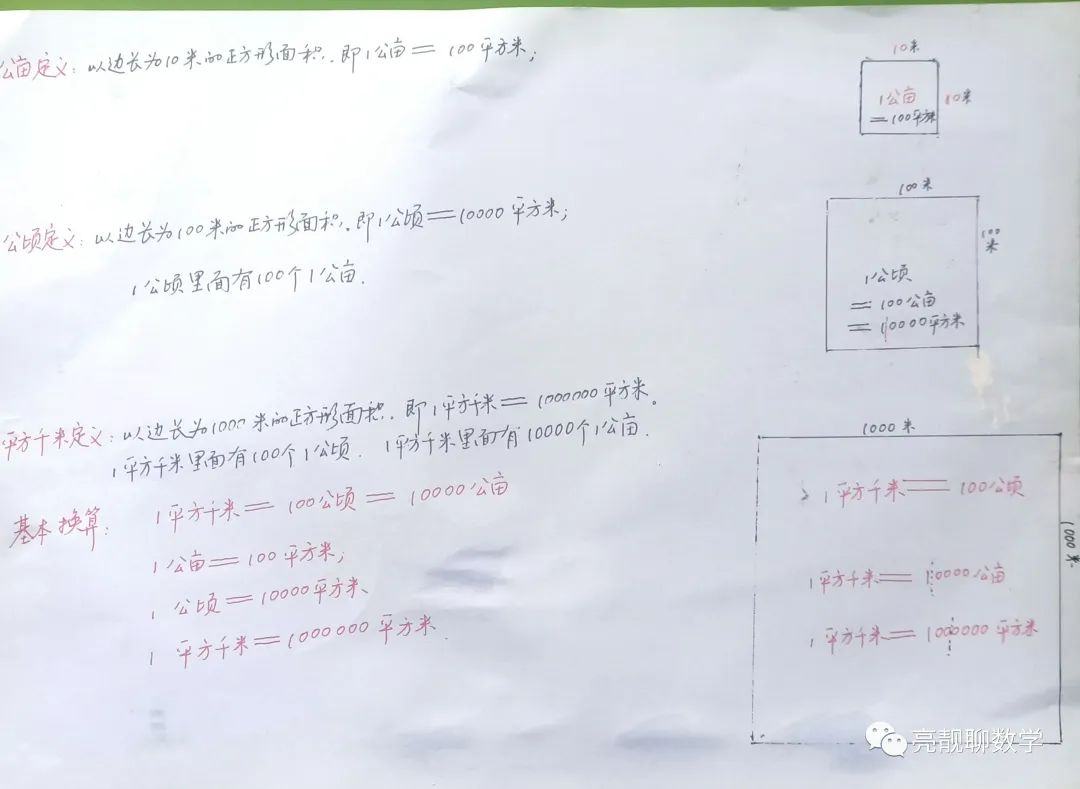 公亩定义：以边长为10米的正方形面积.即1公亩=100平方米；
10米
10米
1公亩
=100平方米
公顷定义：以边长为100米的正方形面积.即1公顷=10000平方米；
1公顷里面有100个1公亩.
100米
100
米
1公顷
=100公亩
=10000平方米
平方千米定义：以边长为1000米的正方形面积.即1平方千米=1000000平方米。
1平方千米里面有100个1公顷. 1平方千米里面有10000个1公亩.
基本换算：1平方千米=100公顷=10000公亩
1公亩=100平方米；
1公顷=10000平方米
1平方千米=1000000平方米.
1000米
1000米
1平方千米=100公顷
1平方千米=10000公亩
1平方千米=1000000平方米
亮靓聊数学